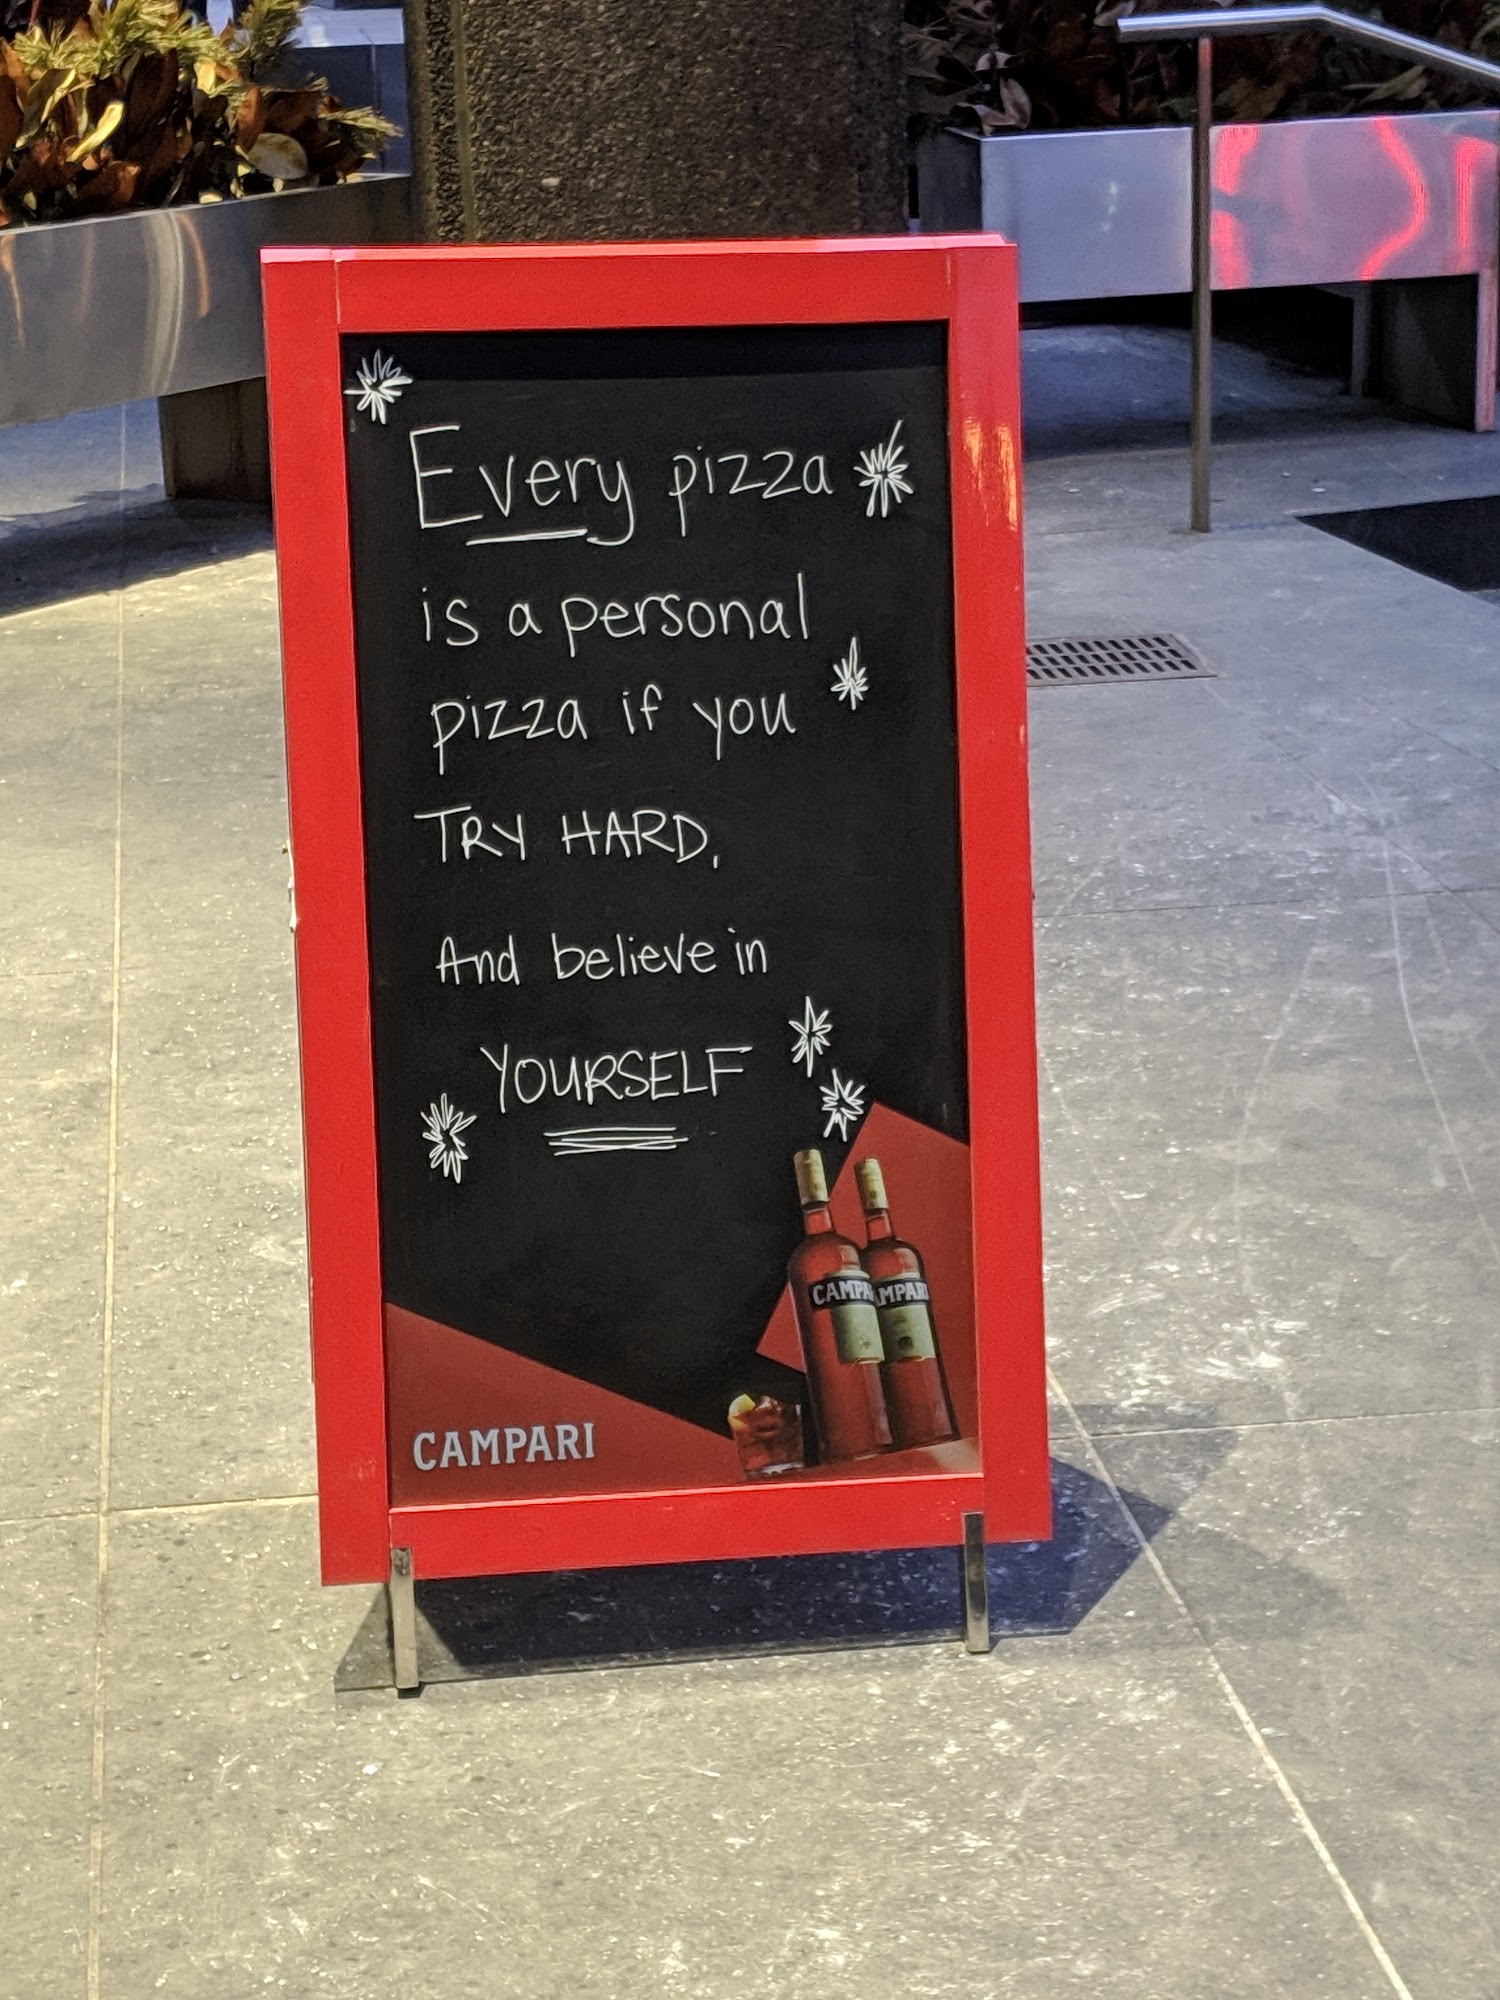 Every pizza
is a personal
pizza if you
TRY HARD,
And believe in
YOURSELF
CAMPARI
CAMPA
MPARI